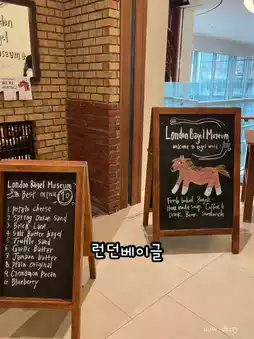 London Bagel Museum
Best menu 10
1 Potato cheese
2 Spring Onion Sand
3 Brick Lane
4 Salt Butter bagel
5 Truffle Sand
6 Garlic Butter
7 Jambon Butter
8 Plain original
9 Cinnamon Pecan
10 Blueberry
London Bagel Museum
welcome to bagel world
Fresh baked Bagels
Soup Coffee &
Drink Beer Sandwich
런던베이글